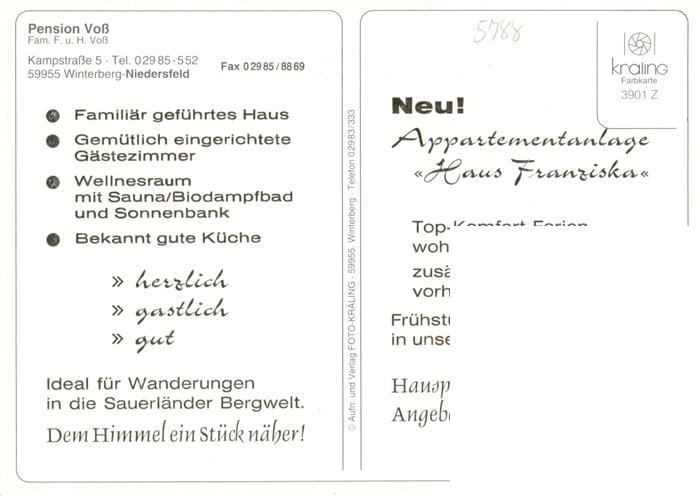 Pension Voß
Fam. F. u. H. Voß
Kampstraße 5 · Tel. 02985-552
59955 Winterberg-Niedersfeld
Fax 02985/8869
Familiär geführtes Haus
Gemütlich eingerichtete
Gästezimmer
Wellnesraum
mit Sauna/Biodampfbad
und Sonnenbank
Bekannt gute Küche
» herzlich
» gastlich
» gut
Ideal für Wanderungen
in die Sauerländer Bergwelt.
Dem Himmel ein Stück näher!
© Aufn. und Verlag FOTO-KRÄLING · 59955 Winterberg · Telefon 02983/333
5788
kräling
Farbkarte
3901 Z
Neu!
Appartementanlage
«Haus Franziska«
Top-Komfort Ferien
in